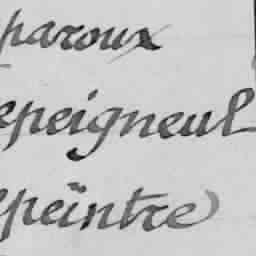 paroux
epeigneul
peintre